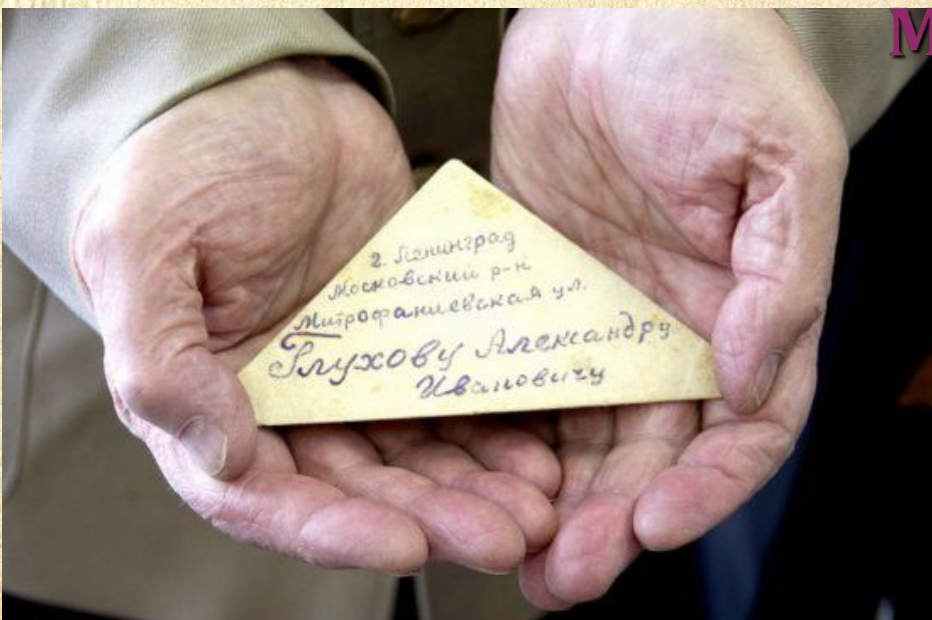 М
г. Ленинград
Московский р-н
Митрофаниевская ул.
Глухову Александру
Ивановичу